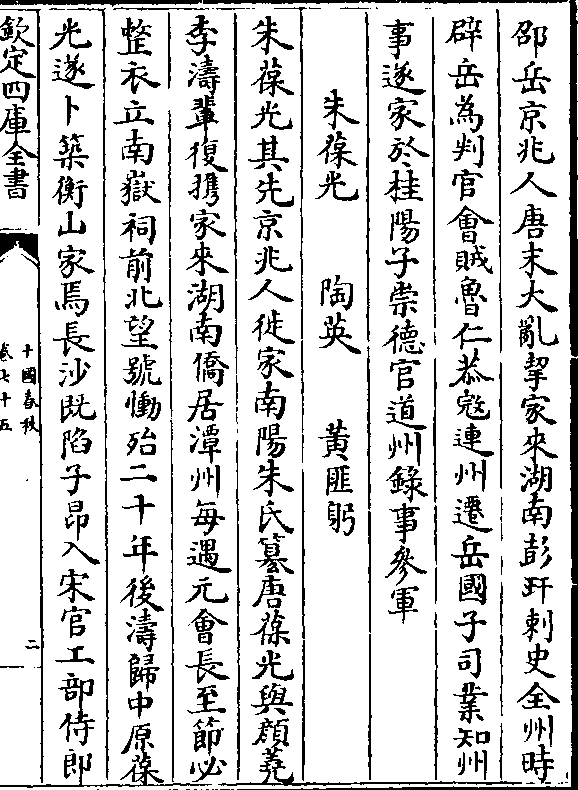 邵岳京兆人唐末大亂挈家來湖南彭玕刺史全州時
辟岳為判官會賊魯仁恭寇連州遷岳國子司業知州
事遂家於桂陽子崇德官道州錄事參軍
朱葆光　陶英　黃匪躬
朱葆光其先京兆人徙家南陽朱氏簒唐葆光與顔蕘
李濤輩復携家來湖南僑居潭州每遇元會長至節必
整衣立南嶽祠前北望號慟殆二十年後濤歸中原葆
光遂卜築衡山家焉長沙既陷子昂入宋官工部侍郎
欽定四庫全書
十國春秋
卷七十五
二